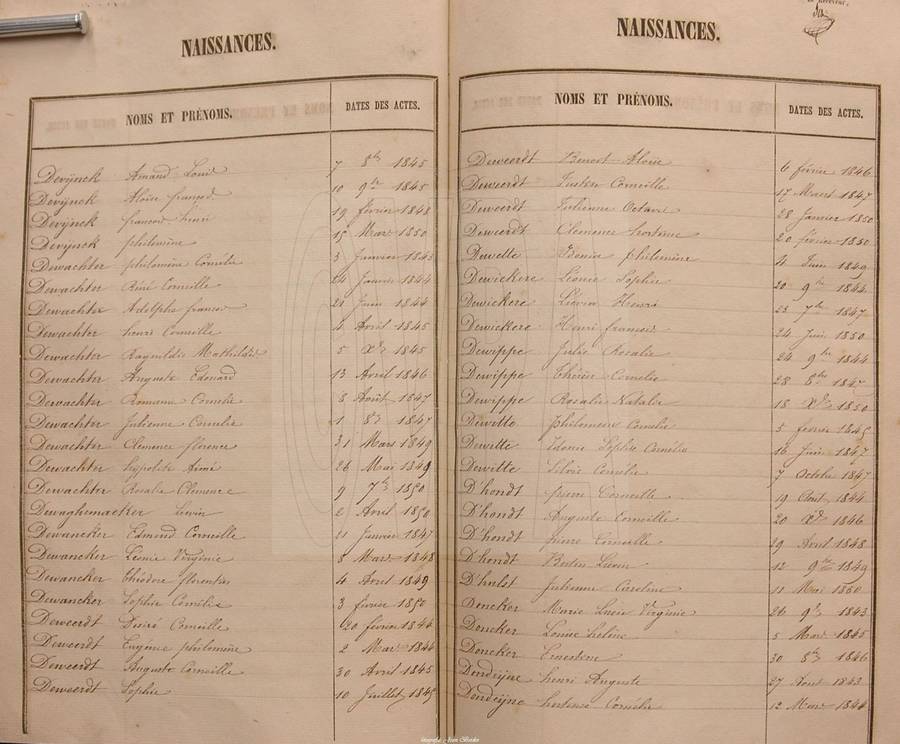 NAISSANCES.
NOMS ET PRÉNOMS. DATES DES ACTES.
Devijnck Amand Louis 7 8bre 1845
Devijnck Aloise françois 10 9bre 1845
Devijnck françois henri 19 février 1848
Devijnck philomène 15 Mars 1850
Dewachter philomène Cornélie 3 Janvier 1843
Dewachter René Corneille 24 Janvier 1844
Dewachter Adolphe françois 21 Juin 1844
Dewachter henri Corneille 4 Avril 1845
Dewachter Raynildis Mathilde 5 Xbre 1845
Dewachter Auguste Edouard 13 Avril 1846
Dewachter Romanie Cornelie 8 Août 1847
Dewachter Julienne Cornelie 1 8bre 1847
Dewachter Clemence florence 31 Mars 1849
Dewachter hyppolite Aimé 26 Mai 1849
Dewachter Rosalie Clemence 9 7bre 1850
Dewaghemaecker Livin 2 Avril 1850
Dewancker Edmond Corneille 21 Janvier 1847
Dewancker Léonie Virginie 8 Mars 1848
Dewancker théodore florentin 4 Avril 1849
Dewancker Sophie Cornélie 3 février 1850
Deweerdt Désiré Corneille 20 février 1844
Deweerdt Eugénie philomène 2 Mars 1844
Deweerdt Auguste Corneille 30 Avril 1845
Deweerdt Sophie 10 Juillet 1845
NAISSANCES.
NOMS ET PRÉNOMS. DATES DES ACTES.
Deweerdt Benoit Aloise 6 février 1846
Deweerdt Justin Corneille 17 Mars 1847
Deweerdt Julienne Octavie 28 Janvier 1850
Deweerdt Clemence hortense 20 février 1850
Dewette Idonie philomène 4 Juin 1849
Dewickere Léonie Sophie 20 9bre 1844
Dewickere Livin Henri 23 7bre 1847
Dewickere Henri françois 24 Juin 1850
Dewippe Julie Rosalie 24 9bre 1844
Dewippe thérèse Cornelie 28 8bre 1847
Dewippe Rosalie Natalie 18 Xbre 1850
Dewitte philomène Cornelie 5 février 1845
Dewitte Idonie Sophie Cornélie 16 Juin 1847
Dewitte Silvie Cornélie 7 Octobre 1847
D'hondt pierre Corneille 19 Août 1844
D'hondt Auguste Corneille 20 Xbre 1846
D'hondt pierre Corneille 29 Avril 1848
D'hondt Livin 12 9bre 1849
D'hulst Julienne Caroline 11 Mai 1850
Doncker Marie Lucie Virginie 26 9bre 1843
Doncker Louise helène 5 Mars 1845
Doncker Ernestine 30 8bre 1846
Dondeijne henri Auguste 27 Août 1843
Dondeijne hortense Cornelie 12 Mars 1844